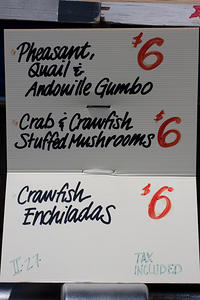 Pheasant, $6
Quail &
Andouille Gumbo
Crab & Crawfish $6
Stuffed Mushrooms
Crawfish $6
Enchiladas
II-27 TAX
INCLUDED